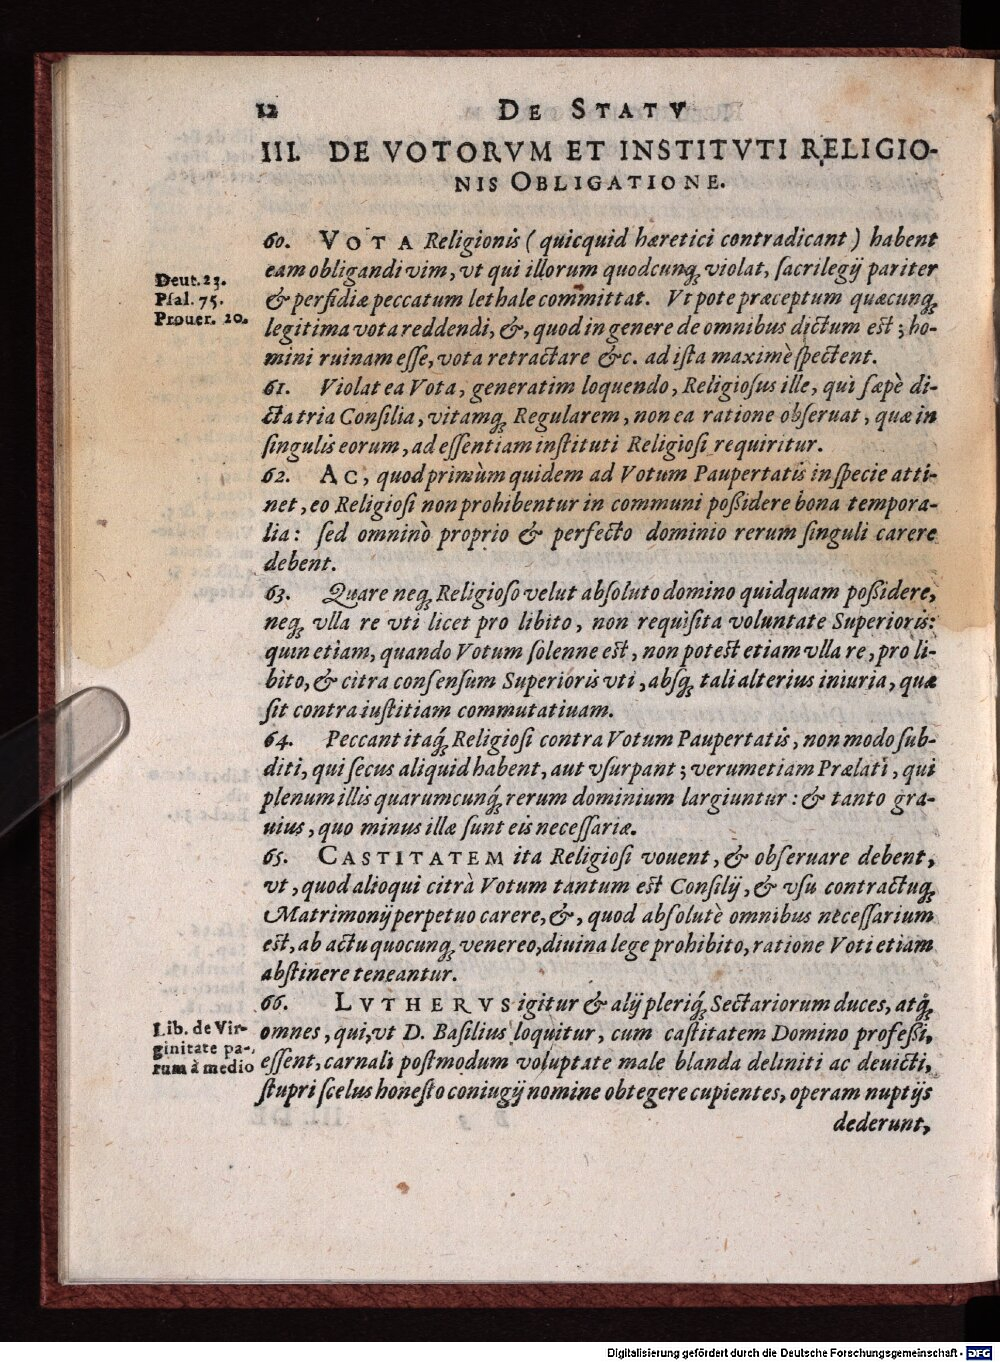 12 DE STATV
III. DE VOTORVM ET INSTITVTI RELIGIO-
NIS OBLIGATIONE.
60. VOTA Religionis (quicquid hæretici contradicant) habent
eam obligandi vim, vt qui illorum quodcunq́; violat, ſacrilegij pariter
& perfidiæ peccatum lethale committat. Vt pote præceptum quæcunq́;
legitima vota reddendi, &, quod in genere de omnibus dictum est; ho-
mini ruinam eſſe, vota retractare &c. ad iſta maximè ſpectent.
Deut. 23.
Pſal. 75.
Prouer. 20.
61. Violat ea Vota, generatim loquendo, Religioſus ille, qui ſæpè di-
cta tria Conſilia, vitamq́; Regularem, non ea ratione obſeruat, quæ in
ſingulis eorum, ad eſſentiam inſtituti Religioſi requiritur.
62. AC, quod primùm quidem ad Votum Paupertatis in ſpecie atti-
net, eo Religioſi non prohibentur in communi poßidere bona tempora-
lia: ſed omninò proprio & perfecto dominio rerum ſinguli carere
debent.
63. Quare neq́; Religioſo velut abſoluto domino quidquam poßidere,
neq́; vlla re vti licet pro libito, non requiſita voluntate Superioris:
quin etiam, quando Votum ſolenne est, non potest etiam vlla re, pro li-
bito, & citra conſenſum Superioris vti, abſq́; tali alterius iniuria, quæ
ſit contra iuſtitiam commutatiuam.
64. Peccant itaq́; Religioſi contra Votum Paupertatis, non modo ſub-
diti, qui ſecus aliquid habent, aut vſurpant; verumetiam Prælati, qui
plenum illis quarumcunq́; rerum dominium largiuntur: & tanto gra-
uius, quo minus illæ ſunt eis neceſſariæ.
65. CASTITATEM ita Religioſi vouent, & obſeruare debent,
vt, quod alioqui citrà Votum tantum est Conſilij, & vſu contractuq́;
Matrimonij perpetuo carere, &, quod abſolutè omnibus neceſſarium
est, ab actu quocunq́; venereo, diuina lege prohibito, ratione Voti etiam
abſtinere teneantur.
66. LVTHERVS igitur & alij pleriq́; Sectariorum duces, atq́;
omnes, qui, vt D. Baſilius loquitur, cum caſtitatem Domino profeßi,
eſſent, carnali poſtmodum voluptate male blanda deliniti ac deuicti,
ſtupri ſcelus honeſto coniugij nomine obtegere cupientes, operam nuptijs
dederunt,
Lib. de Vir-
ginitate pa-
rum à medio
Digitalisierung gefördert durch die Deutsche Forschungsgemeinschaft - DFG